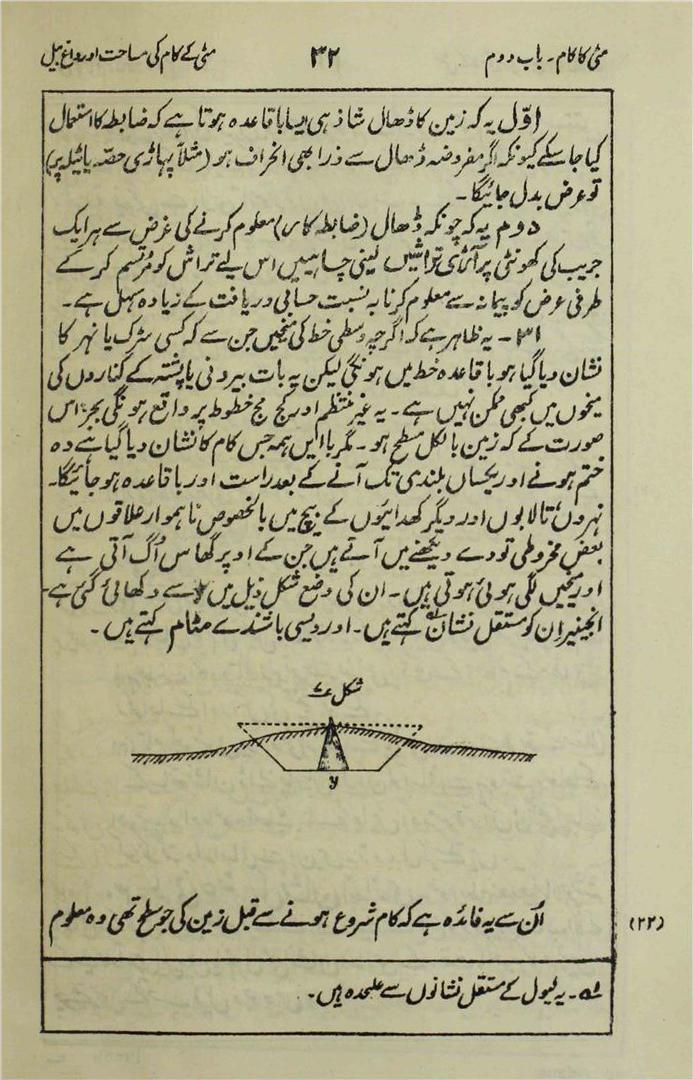 مٹی کا کام۔ باب دوم
۳۲
مٹی کے کام کی مساحت اور داغ بیل
اوّل یہ کہ زمین کا ڈھال شاذ ہی ایسا با قاعدہ ہوتا ہے کہ ضابطہ کا استعمال
کیا جا سکے کیونکہ اگر مفروضہ ڈھال سے ذرا بھی انحراف ہو (مثلاً پہاڑی حصّہ یا ٹیلہ پر)
تو عرض بدل جائیگا۔
دوم یہ کہ چونکہ ڈھال (ضابطہ کا س) معلوم کرنے کی غرض سے ہر ایک
جریب کی کھونٹی پر آڑی تراشیں لینی چاہییں اس لیے تراش کو مرتسم کر کے
طرفی عرض کو پیمانہ سے معلوم کرنا بہ نسبت حسابی دریافت کے زیادہ سہل ہے۔
۳۱ ۔ یہ ظاہر ہے کہ اگرچہ وسطی خط کی میخیں جن سے کہ کسی سڑک یا نہر کا
نشان دیا گیا ہو با قاعدہ خط میں ہونگی لیکن یہ بات بیرونی یا پشتہ کے کناروں کی
میخوں میں کبھی ممکن نہیں ہے۔ یہ غیر منتظم اور کج مج خطوط پر واقع ہونگی بجز اس
صورت کے کہ زمین بالکل مسطح ہو۔ مگر با ایں ہمہ جس کام کا نشان دیا گیا ہے وہ
ختم ہونے اور یکساں بلندی تک آنے کے بعد راست اور با قاعدہ ہو جائیگا۔
نہروں، تالابوں اور دیگر کھدائیوں کے بیچ میں بالخصوص نا ہموار علاقوں میں
بعض مخروطی تودے دیکھنے میں آتے ہیں جن کے اوپر گھاس اُگ آتی ہے
اور میخیں لگی ہوئی ہوتی ہیں۔ ان کی وضع شکل ذیل میں لا سے دکھائی گئی ہے۔
انجینیر ان کو مستقل نشان کہتے ہیں۔ اور دیسی باشندے مٹام کہتے ہیں۔
شکل ۷
لا
اُن سے یہ فائدہ ہے کہ کام شروع ہونے سے قبل زمین کی جو سطح تھی وہ معلوم
(۲۲)
لہ ۔ یہ لیول کے مستقل نشانوں سے علحدہ ہیں۔